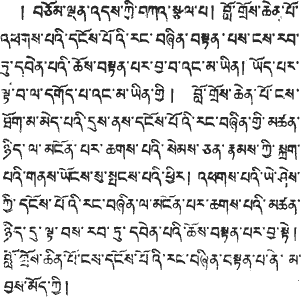 ། བཅོམ་ལྡན་འདས་ཀྱི་བཀའ་སྩལ་པ། བློ་གྲོས་ཆེན་པོ་
འཕགས་པའི་དངོས་པོའི་རང་བཞིན་བསྟན་པས་ངས་རབ་
ཏུ་དབེན་པའི་ཆོས་བསྟན་པར་བྱ་བ་འང་མ་ཡིན། ཡོད་པར་
ལྟ་བ་ལ་དགོད་པ་འང་མ་ཡིན་གྱི། བློ་གྲོས་ཆེན་པོ་ངས་
ཐོག་མ་མེད་པའི་དུས་ནས་དངོས་པོའི་རང་བཞིན་གྱི་མཚན་
ཉིད་ལ་མངོན་པར་ཆགས་པའི་སེམས་ཅན་རྣམས་ཀྱི་སྐྲག་
པའི་གནས་ཡོངས་སུ་སྤངས་པའི་ཕྱིར། འཕགས་པའི་ཡེ་ཤེས་
ཀྱི་དངོས་པོའི་རང་བཞིན་ལ་མངོན་པར་ཆགས་པའི་མཚན་
ཉིད་དུ་ལྟ་བས་རབ་ཏུ་དབེན་པའི་ཆོས་བསྟན་པར་བྱ་སྟེ།
བློ་གྲོས་ཆེན་པོ་ངས་དངོས་པོའི་རང་བཞིན་བསྟན་པ་ནི་མ་
བྱས་མོད་ཀྱི།